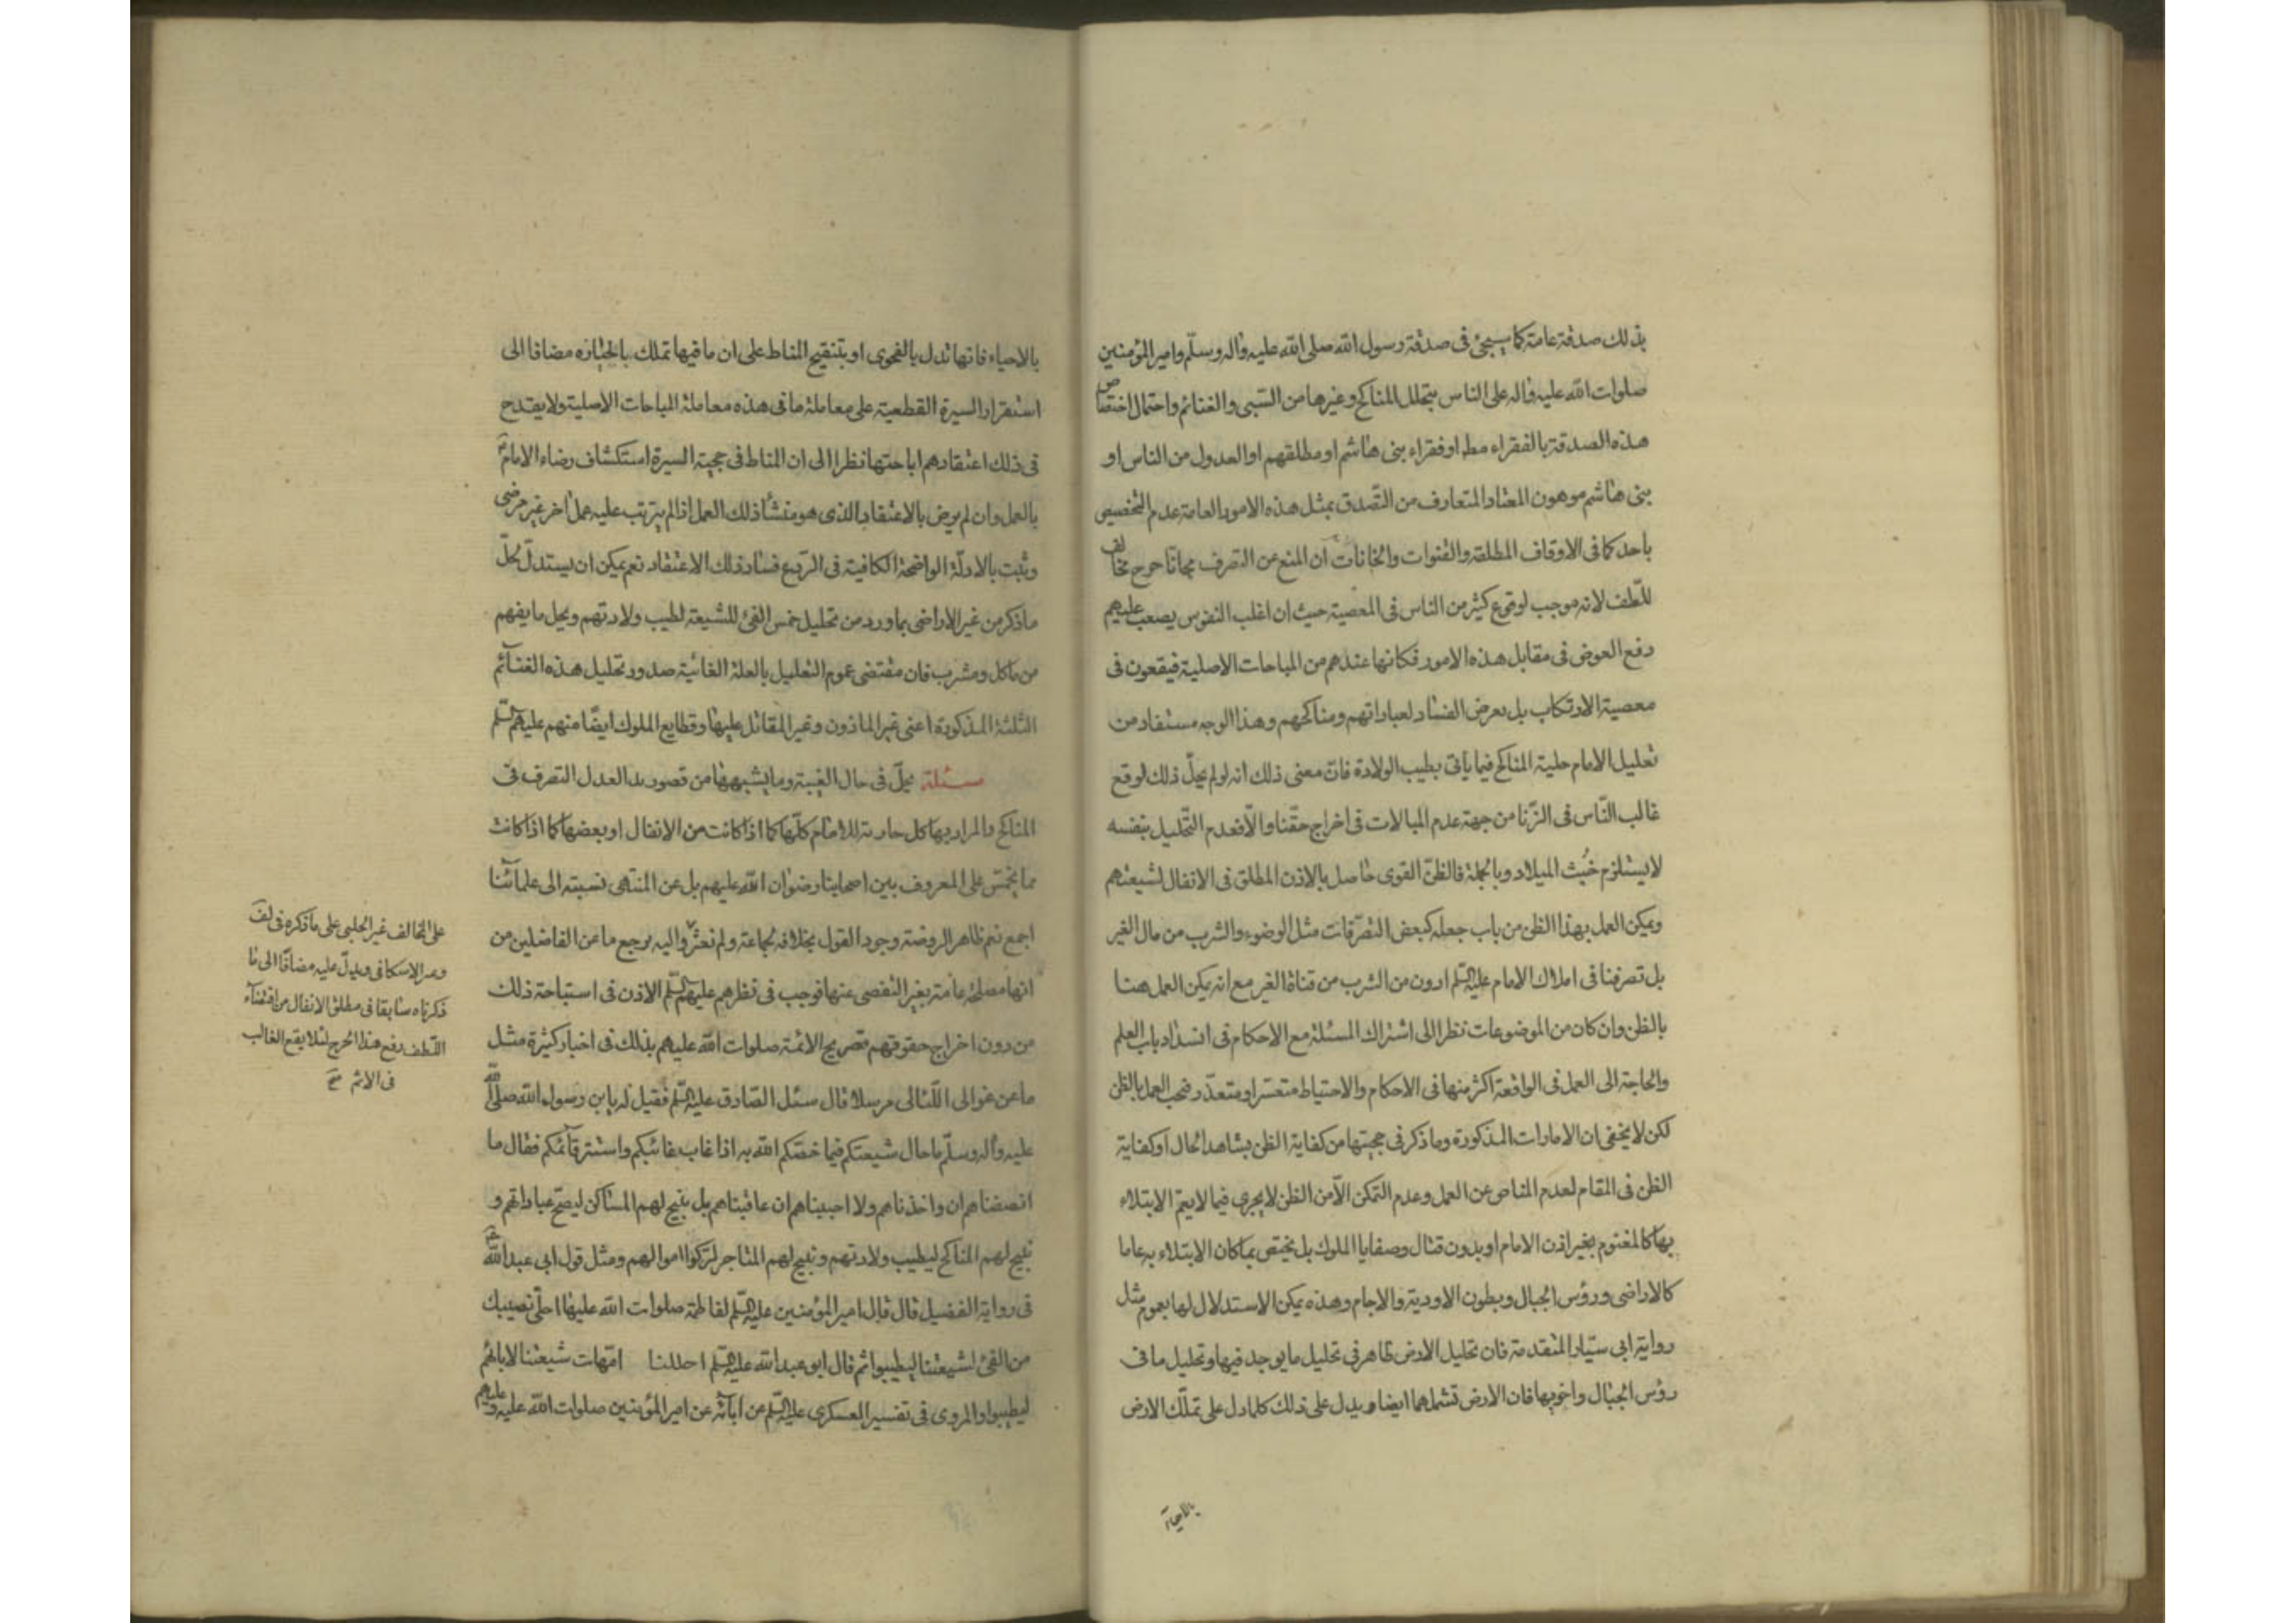 بذلك صدقة عامة كما سيجئ فى صدقة رسول الله صلى الله عليه واله وسلّم وامير المؤمنين
صلوات الله عليه واله على الناس بتحلل المناكح وغيرها من السّبى والغنائم واحتمال اختصاص
هذه الصدقة بالفقراء مط او فقراء بنى هاشم او مطلقهم او العدول من الناس او
بنى هاشم موهون المعتاد المتعارف من التّصدق بمثل هذه الامور العامة عدم التخصيص
باحد كما فى الاوقاف المطلقة والقنوات والخانات ان المنع عن التصرف مجانا حرج مخالف
للّطف لانه موجب لوقوع كثير من الناس فى المعصية حيث ان اغلب النفوس يصعب عليهم
دفع العوض فى مقابل هذه الامور فكانها عندهم من المباحات الاصلية فيقعون فى
معصية الارتكاب بل يعرض الفساد لعباداتهم ومناكحهم وهذا الوجه مستفاد من
تعليل الامام حلية المناكح فيما يأتى بطيب الولادة فانّ معنى ذلك انه لو لم يحلّ ذلك لوقع
غالب النّاس فى الزّنا من جهة عدم المبالات فى اخراج حقّنا والّا فعدم التّحليل بنفسه
لا يستلزم خبث الميلاد وبالجملة فالظنّ القوى حاصل بالاذن المطلق فى الانفال لشيعتهم
ويمكن العمل بهذا الظن من باب جعله كبعض التصّرفات مثل الوضوء والشرب من مال الغير
بل تصرفنا فى املاك الامام عليه السّلم ادون من الشرب من قناة الغير مع انه يمكن العمل هنا
بالظن وان كان من الموضوعات نظرا الى اشتراك المسئلة مع الاحكام فى انسداد باب العلم
والحاجة الى العمل فى الواقعة اكثر منها فى الاحكام والاحتياط متعسّر او متعذّر فيجب العمل بالظن
لكن لا يخفى ان الامارات المذكورة وما ذكر فى حجيتها من كفاية الظن بشاهد الحال او كفاية
الظن فى المقام لعدم المناص عن العمل وعدم التمكن الّا من الظن لا يجرى فيما لا يعمّ الابتلاء
بها كالمغنوم بغير اذن الامام او بدون قتال وصفايا الملوك بل يختص بما كان الابتلاء به عاما
كالاراضى ورؤس الجبال وبطون الاودية والاجام وهذه يمكن الاستدلال لها بعموم مثل
رواية ابى سيّار المتقدمة فان تحليل الارض ظاهر فى تحليل ما يوجد فيها وتحليل ما فى
رؤس الجبال واخويها فان الارض تشملهما ايضا ويدل على ذلك كلما دل على تملّك الارض
بالاحياء
بالاحياء فانها تدل بالفحوى او بتنقيح المناط على ان ما فيها تملك بالحيازه مضافا الى
استقرار السيرة القطعية على معاملة ما فى هذه معاملة المباحات الاصلية ولا يقدح
فى ذلك اعتقادهم اباحتها نظرا الى ان المناط فى حجية السيرة استكشاف رضاء الامام
بالعمل وان لم يرض بالاعتقاد الذى هو منشأ ذلك العمل اذا لم يترتب عليه عمل اخر غير مرضى
وثبت بالادلّة الواضحة الكافية فى الردع فساد ذلك الاعتقاد نعم يمكن ان يستدلّ لحلّ
ما ذكر من غير الاراضى بما ورد من تحليل خمس الفئ للشيعة لطيب ولادتهم ويحل ما يفهم
من ماكل ومشرب فان مقتضى عموم التعليل بالعلة الغائية صدور تحليل هذه الغنائم
الثلثة المذكورة اعنى غير الماذون وغير المقاتل عليها وقطايع الملوك ايضا منهم عليهم السّلم
مسئلة يحلّ فى حال الغيبة وما يشبهها من قصور يد العدل التصرف فى
المناكح والمراد بها كل جارية للامام كلّها كما اذا كانت من الانفال او بعضها كما اذا كانت
مما يخمّس على المعروف بين اصحابنا رضوان الله عليهم بل عن المنتهى نسبته الى علمائنا
اجمع نعم ظاهر الروضة وجود القول بخلافه لجماعة ولم نعثر واليه يرجع ما عن الفاضلين من
انها مصلحة عامة بغير التفصى عنها فوجب فى نظرهم عليهم السّلم الاذن فى استباحة ذلك
من دون اخراج حقوقهم تصريح الائمة صلوات الله عليهم بذلك فى اخبار كثيرة مثل
ما عن غوالى اللّئالى مرسلا قال سئل الصّادق عليه السّلم فقيل له يا بن رسول الله صلّى الله
عليه واله وسلّم ما حال شيعتكم فيما خصّكم الله به اذا غاب غائبكم واستتر قائمكم فقال ما
انصفناهم ان واخذناهم ولا احببناهم ان عاقبناهم بل نبيح لهم المساكن ليصحّ عباداتهم و
نبيح لهم المناكح ليطيب ولادتهم ونبيح لهم المتاجر لتزكوا اموالهم ومثل قول ابى عبد الله
فى رواية الفضيل قال قال امير المؤمنين عليه السّلم لفاطمة صلوات الله عليها احلّى نصيبك
من الفئ لشيعتنا ليطيبوا ثم قال ابو عبد الله عليه السّلم احللنا امّهات شيعتنا لابائهم
ليطيبوا والمروى فى تفسير العسكرى عليه السّلم عن ابائه عن امير المؤمنين صلوات الله عليه وعليهم
على المخالف غير الحلبى على ما ذكره فى لف
والاسكافى ويدلّ عليه مضافا الى ما
ذكرناه سابقا فى مطلق الانفال من اقتضاء
اللّطف رفع هذا الحرج لئلا يقع الغالب
فى الاثم صح